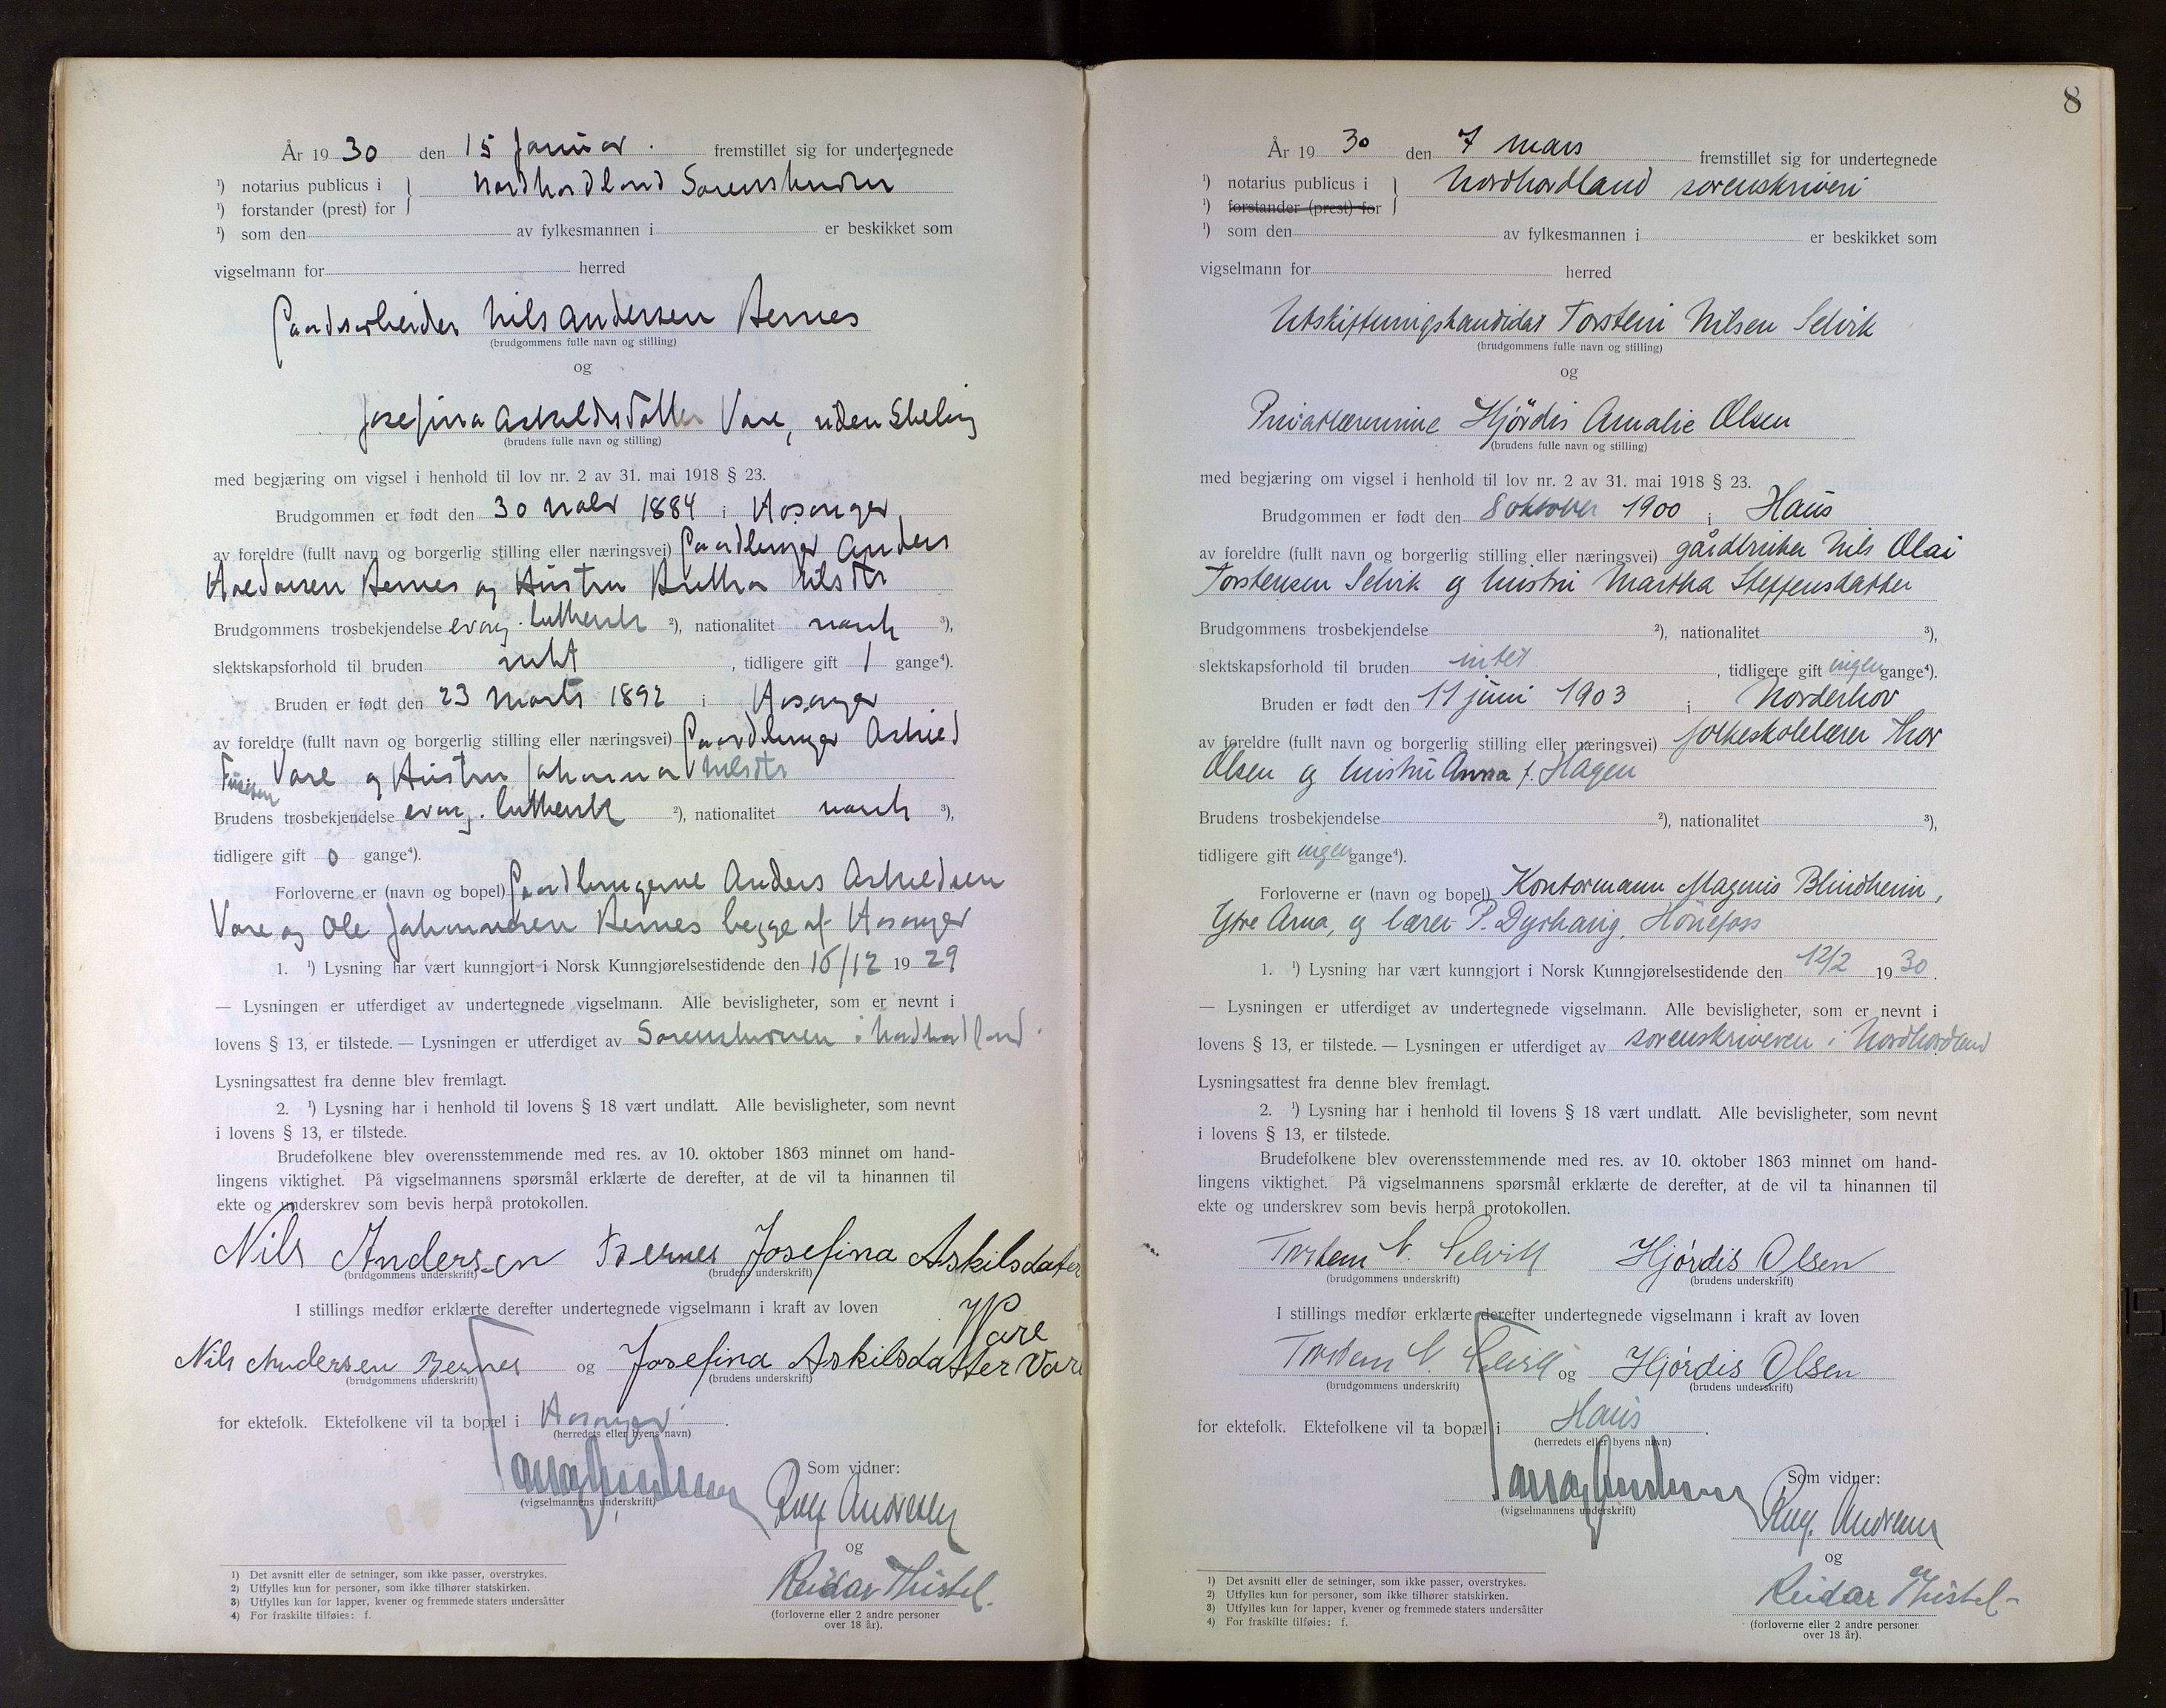 År 1930 den 15 Januar. fremstillet sig for undertegnede
¹) notarius publicus i } Nordhordland Sorenskriveri
¹) forstander (prest) for
¹) som den av fylkesmannen i er beskikket som
vigselmann for herred
Gaardsarbeider Nils Andersen Bernes
(brudgommens fulle navn og stilling)
og
Josefina Askeldsdatter Vare, uden Stilling
(brudens fulle navn og stilling)
med begjæring om vigsel i henhold til lov nr. 2 av 31. mai 1918 § 23.
Brudgommen er født den 30 Novbr 1884 i Hosanger
av foreldre (fullt navn og borgerlig stilling eller næringsvei) Gaardbruger Anders
Bernes og Hustru Nilsdtr
Brudgommens trosbekjendelse evang. luthersk ²), nationalitet norsk ³),
slektskapsforhold til bruden intet, tidligere gift 1 gange⁴).
Bruden er født den 23 Marts 1892 i Hosanger
av foreldre (fullt navn og borgerlig stilling eller næringsvei) Gaardbruger Askied
Vare og Hustru Johanna Nilsdtr
Brudens trosbekjendelse evang. luthersk ²), nationalitet norsk ³),
tidligere gift 0 gange⁴).
Forloverne er (navn og bopel) Gaardbrugerne Anders Askieldsen
Vare og Ole Johannesen Bernes begge af Hosanger
1. ¹) Lysning har vært kunngjort i Norsk Kunngjørelsestidende den 16/12 1929
— Lysningen er utferdiget av undertegnede vigselmann. Alle bevisligheter, som er nevnt i
lovens § 13, er tilstede. — Lysningen er utferdiget av Sorenskriveren i Nordhordland.
Lysningsattest fra denne blev fremlagt.
2. ¹) Lysning har i henhold til lovens § 18 vært undlatt. Alle bevisligheter, som nevnt
i lovens § 13, er tilstede.
Brudefolkene blev overensstemmende med res. av 10. oktober 1863 minnet om hand-
lingens viktighet. På vigselmannens spørsmål erklærte de derefter, at de vil ta hinannen til
ekte og underskrev som bevis herpå protokollen.
Nils Andersen Bernes Josefina Askilsdatter
(brudgommens underskrift) (brudens underskrift)
Vare
I stillings medfør erklærte derefter undertegnede vigselmann i kraft av loven
Nils Andersen Bernes og Josefina Askilsdatter Vare
(brudgommens underskrift) (brudens underskrift)
for ektefolk. Ektefolkene vil ta bopæl i Hosanger.
(herredets eller byens navn)
(vigselmannens underskrift)
Som vidner:
Andresen
og
Reidar Thistel.
(forloverne eller 2 andre personer
over 18 år).
1) Det avsnitt eller de setninger, som ikke passer, overstrykes.
2) Utfylles kun for personer, som ikke tilhører statskirken.
3) Utfylles kun for lapper, kvener og fremmede staters undersåtter
4) For fraskilte tilføies: f.
8
År 1930 den 7 mars fremstillet sig for undertegnede
¹) notarius publicus i } Nordhordland sorenskriveri
¹) forstander (prest) for
¹) som den av fylkesmannen i er beskikket som
vigselmann for herred
Utskiftningskandidat Torstein Nilsen Selvik
(brudgommens fulle navn og stilling)
og
Privatlærerinne Hjördis Amalie Olsen
(brudens fulle navn og stilling)
med begjæring om vigsel i henhold til lov nr. 2 av 31. mai 1918 § 23.
Brudgommen er født den 8 oktober 1900 i Haus
av foreldre (fullt navn og borgerlig stilling eller næringsvei) gårdbruker Nils Olai
Torstensen Selvik og hustru Martha Steffensdatter
Brudgommens trosbekjendelse ²), nationalitet ³),
slektskapsforhold til bruden intet, tidligere gift ingen gange⁴).
Bruden er født den 11 juni 1903 i Norderhov
av foreldre (fullt navn og borgerlig stilling eller næringsvei) folkeskolelærer Thor
Olsen og hustru Anna f. Hagen
Brudens trosbekjendelse ²), nationalitet ³),
tidligere gift ingen gange⁴).
Forloverne er (navn og bopel) Kontormann Magnus Blindheim,
Ytre Arna, og lærer P. Dyrhaug, Hönefoss
1. ¹) Lysning har vært kunngjort i Norsk Kunngjørelsestidende den 12/2 1930.
— Lysningen er utferdiget av undertegnede vigselmann. Alle bevisligheter, som er nevnt i
lovens § 13, er tilstede. — Lysningen er utferdiget av sorenskriveren i Nordhordland
Lysningsattest fra denne blev fremlagt.
2. ¹) Lysning har i henhold til lovens § 18 vært undlatt. Alle bevisligheter, som nevnt
i lovens § 13, er tilstede.
Brudefolkene blev overensstemmende med res. av 10. oktober 1863 minnet om hand-
lingens viktighet. På vigselmannens spørsmål erklærte de derefter, at de vil ta hinannen til
ekte og underskrev som bevis herpå protokollen.
Torstein N. Selvik Hjórdis Olsen
(brudgommens underskrift) (brudens underskrift)
I stillings medfør erklærte derefter undertegnede vigselmann i kraft av loven
Torstein N. Selvik og Hjórdis Olsen
(brudgommens underskrift) (brudens underskrift)
for ektefolk. Ektefolkene vil ta bopæl i Haus.
(herredets eller byens navn)
(vigselmannens underskrift)
Som vidner:
Andresen
og
Reidar Thistel
(forloverne eller 2 andre personer
over 18 år).
1) Det avsnitt eller de setninger, som ikke passer, overstrykes.
2) Utfylles kun for personer, som ikke tilhører statskirken.
3) Utfylles kun for lapper, kvener og fremmede staters undersåtter
4) For fraskilte tilføies: f.